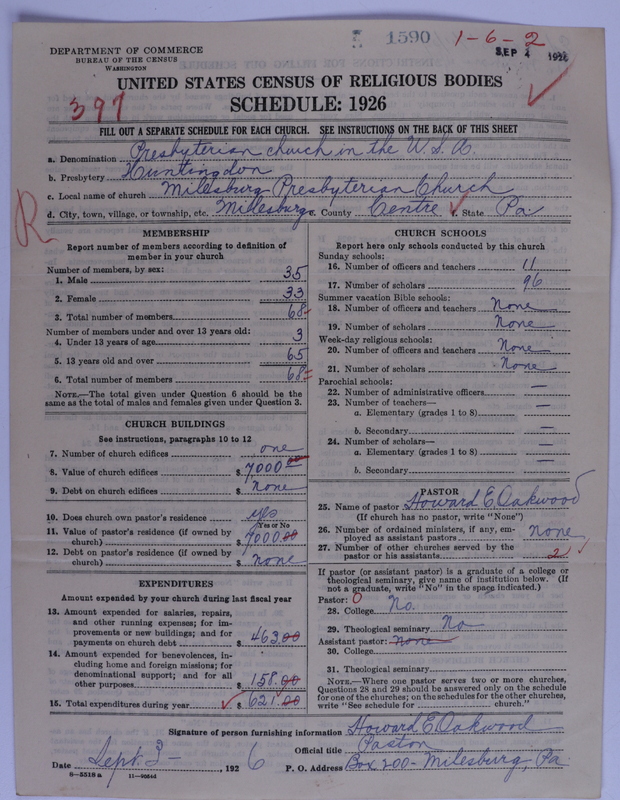 1590 1-6-2
DEPARTMENT OF COMMERCE
BUREAU OF THE CENSUS
WASHINGTON
SEP 4 1926
UNITED STATES CENSUS OF RELIGIOUS BODIES
397
SCHEDULE: 1926
FILL OUT A SEPARATE SCHEDULE FOR EACH CHURCH. SEE INSTRUCTIONS ON THE BACK OF THIS SHEET
a. Denomination Presbyterian church in the U.S.A.
b. Presbytery Huntingdon
c. Local name of church Milesburg Presbyterian Church
d. City, town, village, or township, etc. Milesburg e. County Centre f. State Pa.
R
MEMBERSHIP
Report number of members according to definition of
member in your church
Number of members, by sex:
1. Male 35
2. Female 33
3. Total number of members 68
Number of members under and over 13 years old:
4. Under 13 years of age 3
5. 13 years old and over 65
6. Total number of members 68
NOTE.—The total given under Question 6 should be
same as the total of males and females given under Question 3.
CHURCH BUILDINGS
See instructions, paragraphs 10 to 12
7. Number of church edifices one
8. Value of church edifices $ 7000.00
9. Debt on church edifices $ none
10. Does church own pastor's residence yes
Yes or No
11. Value of pastor's residence (if owned by
church) $ 7000.00
12. Debt on pastor's residence (if owned by
church) $ none
EXPENDITURES
Amount expended by your church during last fiscal year
13. Amount expended for salaries, repairs,
and other running expenses; for im-
provements or new buildings; and for
payments on church debt $ 463.00
14. Amount expended for benevolences, in-
cluding home and foreign missions; for
denominational support; and for all
other purposes $ 158.00
15. Total expenditures during year $ 621.00
CHURCH SCHOOLS
Report here only schools conducted by this church
Sunday schools:
16. Number of officers and teachers 11
17. Number of scholars 96
Summer vacation Bible schools:
18. Number of officers and teachers None
19. Number of scholars None
Week-day religious schools:
20. Number of officers and teachers None
21. Number of scholars None
Parochial schools:
22. Number of administrative officers —
23. Number of teachers—
a. Elementary (grades 1 to 8) —
b. Secondary —
24. Number of scholars—
a. Elementary (grades 1 to 8) —
b. Secondary —
PASTOR
25. Name of pastor Howard E. Oakwood
(If church has no pastor, write "None")
26. Number of ordained ministers, if any, em-
ployed as assistant pastors none
27. Number of other churches served by the
pastor or his assistants 2
If pastor (or assistant pastor) is a graduate of a college or
theological seminary, give name of institution below. (If
not a graduate, write "No" in the space indicated.)
Pastor: O
28. College No.
29. Theological seminary No
Assistant pastor: none
30. College
31. Theological seminary
NOTE.—Where one pastor serves two or more churches,
Questions 28 and 29 should be answered only on the schedule
for one of the churches; on the schedules for the other churches,
write "See schedule for church."
Signature of person furnishing information Howard E. Oakwood
Official title Pastor
Date Sept. 3 -, 1926 P. O. Address Box 200 - Milesburg, Pa.